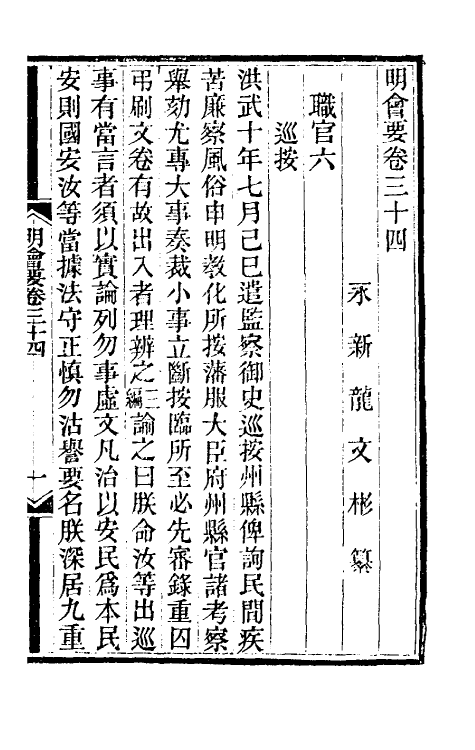 明會要卷三十四
永新龍文彬纂
職官六
巡按
洪武十年七月己巳遣監察御史巡按州縣俾詢民間疾
苦廉察風俗申明敎化所按藩服大臣府州縣官諸考察
舉劾尤專大事奏裁小事立斷按臨所至必先審錄重囚
弔刷文卷有故出入者理辨之三編諭之曰朕命汝等出巡
事有當言者須以實論列勿事虛文凡治以安民爲本民
安則國安汝等當據法守正愼勿沽譽要名朕深居九重
明會要卷三十四
一